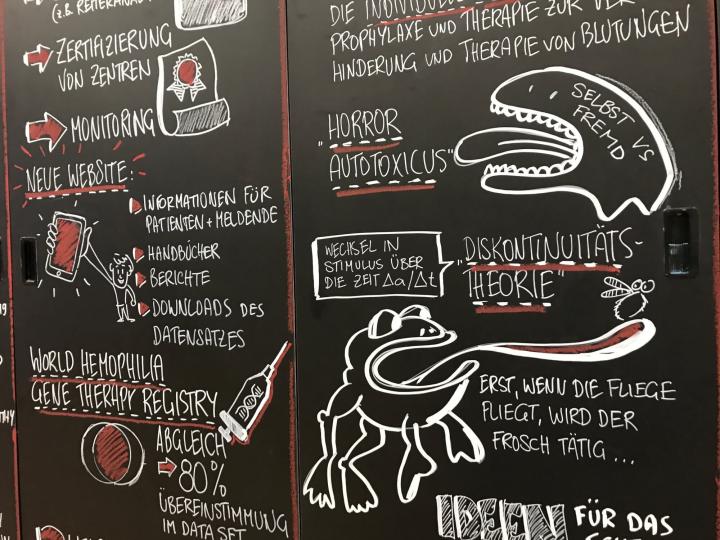 (z.B. REITERANA
ZERTIFIZIERUNG
VON ZENTREN
MONITORING
NEUE WEBSITE:
INFORMATIONEN FÜR
PATIENTEN + MELDENDE
HANDBÜCHER
BERICHTE
DOWNLOADS DES
DATENSATZES
WORLD HEMOPHILIA
GENE THERAPY REGISTRY
ABGLEICH
80%
ÜBEREINSTIMMUNG
IM DATA SET
DIE
PROPHYLAXE UND THERAPIE ZUR VER
HINDERUNG UND THERAPIE VON BLUTUNGEN
SELBST VS
FREMD
„HORROR
AUTOTOXICUS"
WECHSEL IN
STIMULUS ÜBER
DIE ZEIT Δa/Δt
„DISKONTINUITÄTS-
THEORIE"
ERST, WENN DIE FLIEGE
FLIEGT, WIRD DER
FROSCH TÄTIG ...
IDEEN FÜR DAS